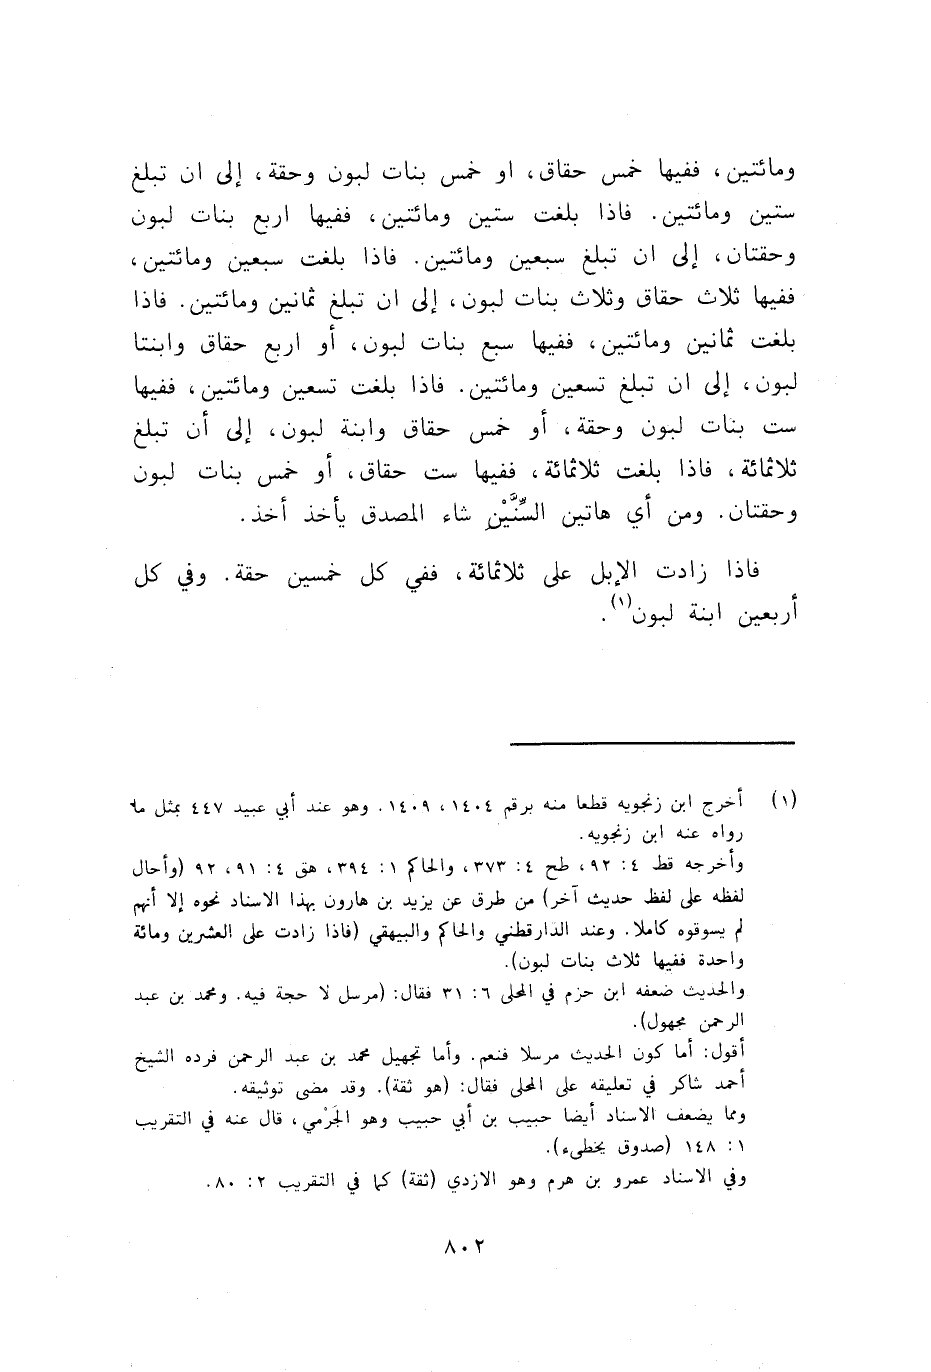 ومائتين، ففيها خمس حقاق، او خمس بنات لبون وحقة، إلى ان تبلغ
ستين ومائتين. فاذا بلغت ستين ومائتين، ففيها اربع بنات لبون
وحقتان، إلى ان تبلغ سبعين ومائتين. فاذا بلغت سبعين ومائتين،
ففيها ثلاث حقاق وثلاث بنات لبون، إلى ان تبلغ ثمانين ومائتين. فاذا
بلغت ثمانين ومائتين، ففيها سبع بنات لبون، أو اربع حقاق وابنتا
لبون، إلى ان تبلغ تسعين ومائتين. فاذا بلغت تسعين ومائتين، ففيها
ست بنات لبون وحقة، أو خمس حقاق وابنة لبون، إلى أن تبلغ
ثلاثمائة، فاذا بلغت ثلاثمائة، ففيها ست حقاق، أو خمس بنات لبون
وحقتان. ومن أي هاتين السِّنَّيْنِ شاء المصدق يأخذ أخذ.
فاذا زادت الإبل على ثلاثمائة، ففي كل خمسين حقة. وفي كل
أربعين ابنة لبون(١).
(١) أخرج ابن زنجويه قطعا منه برقم ١٤٠٤، ١٤٠٩. وهو عند أبي عبيد ٤٤٧ بمثل ما
رواه عنه ابن زنجويه.
وأخرجه قط ٤: ٩٢، طح ٤: ٣٧٣، والحاكم ١: ٣٩٤، هق ٤: ٩١، ٩٢ (وأحال
لفظه على لفظ حديث آخر) من طرق عن يزيد بن هارون بهذا الاسناد نحوه إلا أنهم
لم يسوقوه كاملا. وعند الدارقطني والحاكم والبيهقي (فاذا زادت على العشرين ومائة
واحدة ففيها ثلاث بنات لبون).
والحديث ضعفه ابن حزم في المحلى ٦: ٣١ فقال: (مرسل لا حجة فيه. ومحمد بن عبد
الرحمن مجهول).
أقول: أما كون الحديث مرسلا فنعم. وأما تجهيل محمد بن عبد الرحمن فرده الشيخ
أحمد شاكر في تعليقه على المحلى فقال: (هو ثقة). وقد مضى توثيقه.
ومما يضعف الاسناد أيضا حبيب بن أبي حبيب وهو الجَرْمي، قال عنه في التقريب
١: ١٤٨ (صدوق يخطىء).
وفي الاسناد عمرو بن هرم وهو الازدي (ثقة) كما في التقريب ٢: ٨٠.
٨٠٢